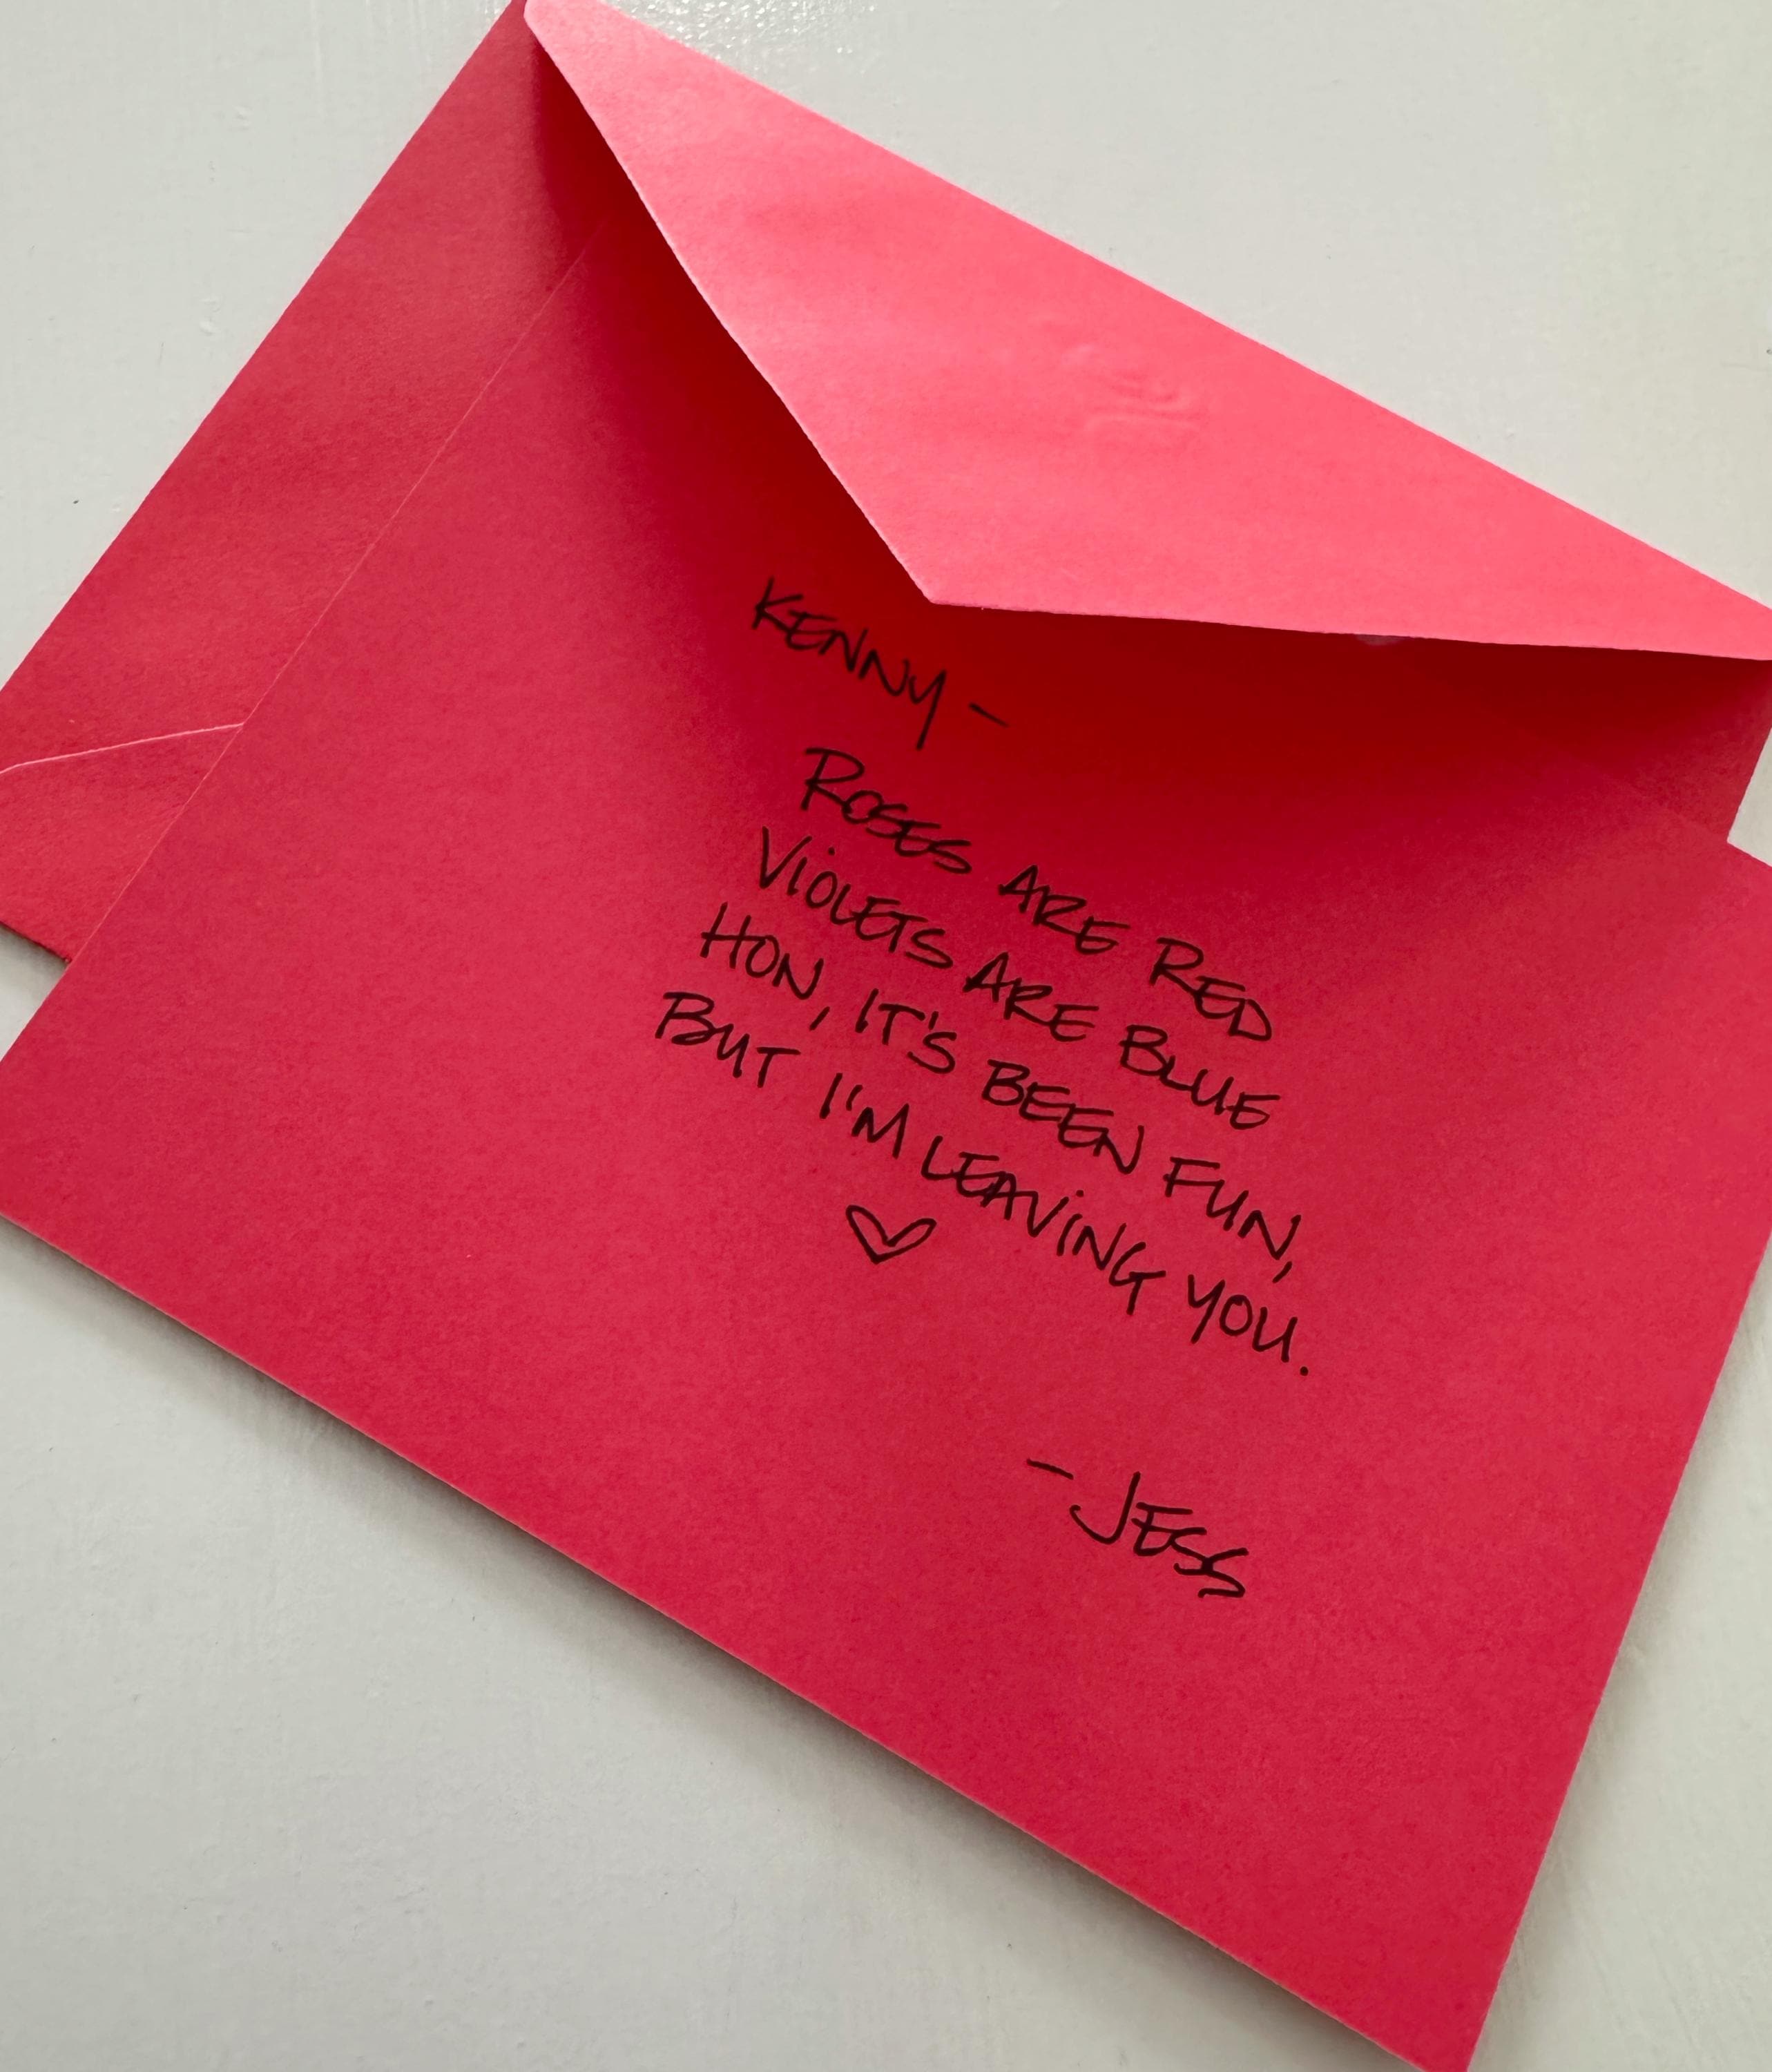 KENNY -
ROSES ARE RED
VIOLETS ARE BLUE
HON, IT'S BEEN FUN,
BUT I'M LEAVING YOU.
- JESS